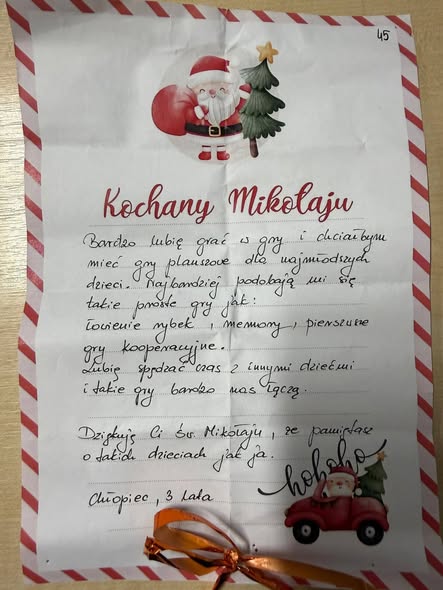 45
Kochany Mikołaju
Bardzo lubię grać w gry i chciałbym
mieć gry planszowe dla najmłodszych
dzieci. Najbardziej podobają mi się
takie proste gry jak:
łowienie rybek, memory, pierwsze
gry kooperacyjne.
Lubię spędzać czas z innymi dziećmi
i takie gry bardzo nas łączą.
Dziękuję Ci św. Mikołaju, że pamiętasz
o takich dzieciach jak ja.
hohoho
Chłopiec, 3 lata